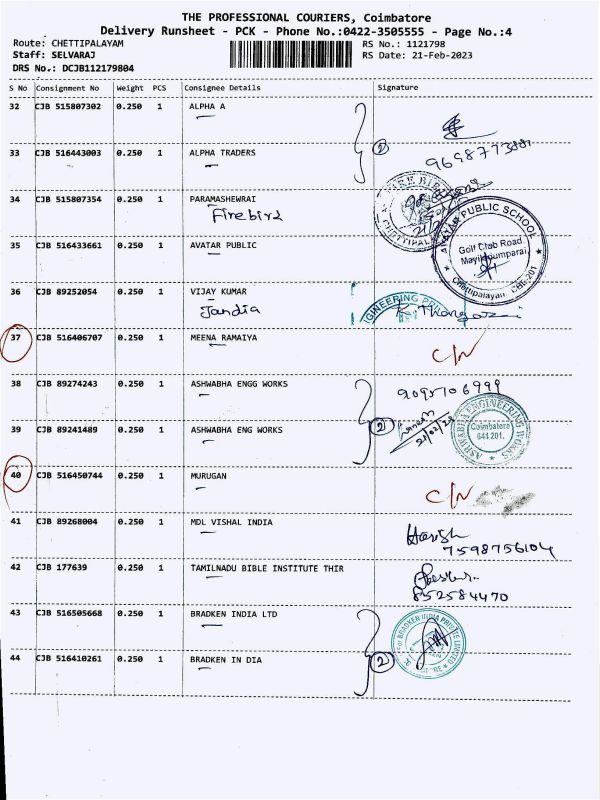 THE PROFESSIONAL COURIERS, Coimbatore
Delivery Runsheet - PCK - Phone No.:0422-3505555 - Page No.:4
Route: CHETTIPALAYAM RS No.: 1121798
Staff: SELVARAJ RS Date: 21-Feb-2023
DRS No.: DCJB112179804
S No Consignment No Weight PCS Consignee Details Signature
32 CJB 515807302 0.250 1 ALPHA A
33 CJB 516443003 0.250 1 ALPHA TRADERS
2
34 CJB 515807354 0.250 1 PARAMASHEWRAI
Firebird
35 CJB 516433661 0.250 1 AVATAR PUBLIC
AVATAR PUBLIC SCHOOL
Golf Club Road
Mayileripumparai
Chettipalayam CBE-201
36 CJB 89252054 0.250 1 VIJAY KUMAR
Jandia
37 CJB 516406707 0.250 1 MEENA RAMAIYA C/N
38 CJB 89274243 0.250 1 ASHWABHA ENGG WORKS
39 CJB 89241489 0.250 1 ASHWABHA ENG WORKS
2
21/02/23
ASHWABHA ENGINEERING WORKS
Coimbatore
641 201.
40 CJB 516450744 0.250 1 MURUGAN C/N
41 CJB 89268004 0.250 1 MDL VISHAL INDIA Harish
7598756104
42 CJB 177639 0.250 1 TAMILNADU BIBLE INSTITUTE THIR
852584470
43 CJB 516505668 0.250 1 BRADKEN INDIA LTD
44 CJB 516410261 0.250 1 BRADKEN IN DIA
2
BRADKEN INDIA PRIVATE LIMITED